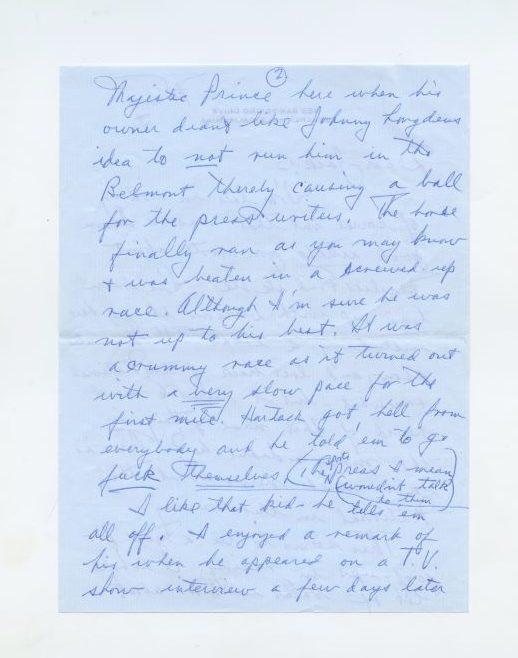 2
Majestic Prince here when his
owner didn't like Johnny Longdens
idea to not run him in the
Belmont thereby causing a ball
for the press writers. The horse
finally ran as you may know
+ was beaten in a screwed-up
race. Although I'm sure he was
not up to his best. It was
a crummy race as it turned out
with a very slow pace for the
first mile. Hartack got hell from
everybody and he told 'em to go
fuck themselves. (The sports press I mean
(wouldn't talk
to them
I like that kid - he tells 'em
all off. I enjoyed a remark of
his when he appeared on a T.V.
show interview a few days later